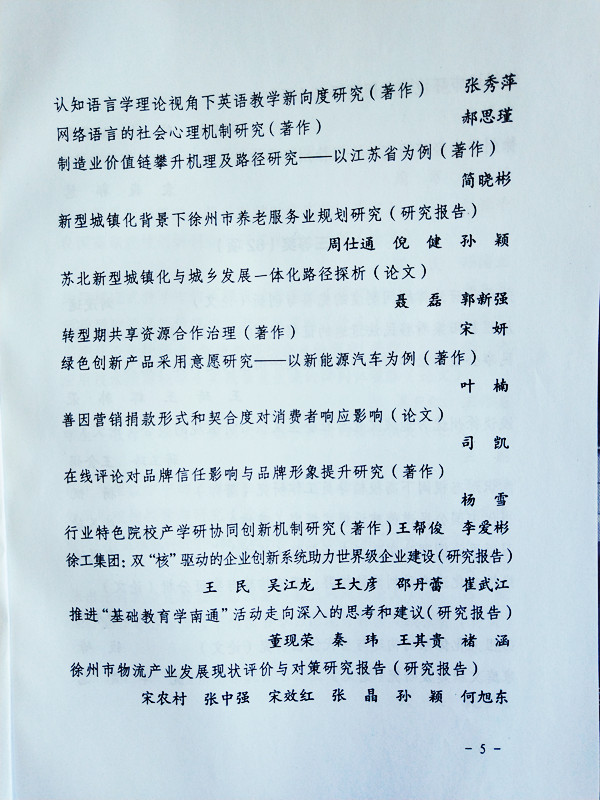 认知语言学理论视角下英语教学新向度研究（著作） 张秀萍
网络语言的社会心理机制研究（著作） 郝思瑾
制造业价值链攀升机理及路径研究——以江苏省为例（著作）
简晓彬
新型城镇化背景下徐州市养老服务业规划研究（研究报告）
周仕通 倪 健 孙 颖
苏北新型城镇化与城乡发展一体化路径探析（论文）
聂 磊 郭新强
转型期共享资源合作治理（著作） 宋 妍
绿色创新产品采用意愿研究——以新能源汽车为例（著作）
叶 楠
善因营销捐款形式和契合度对消费者响应影响（论文）
司 凯
在线评论对品牌信任影响与品牌形象提升研究（著作）
杨 雪
行业特色院校产学研协同创新机制研究（著作）王帮俊 李爱彬
徐工集团：双“核”驱动的企业创新系统助力世界级企业建设（研究报告）
王 民 吴江龙 王大彦 邵丹蕾 崔武江
推进“基础教育学南通”活动走向深入的思考和建议（研究报告）
董现荣 秦 玮 王其贵 褚 涵
徐州市物流产业发展现状评价与对策研究报告（研究报告）
宋农村 张中强 宋效红 张 晶 孙 颖 何旭东
- 5 -